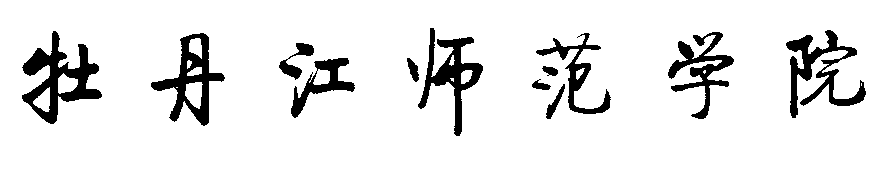 牡丹江师范学院